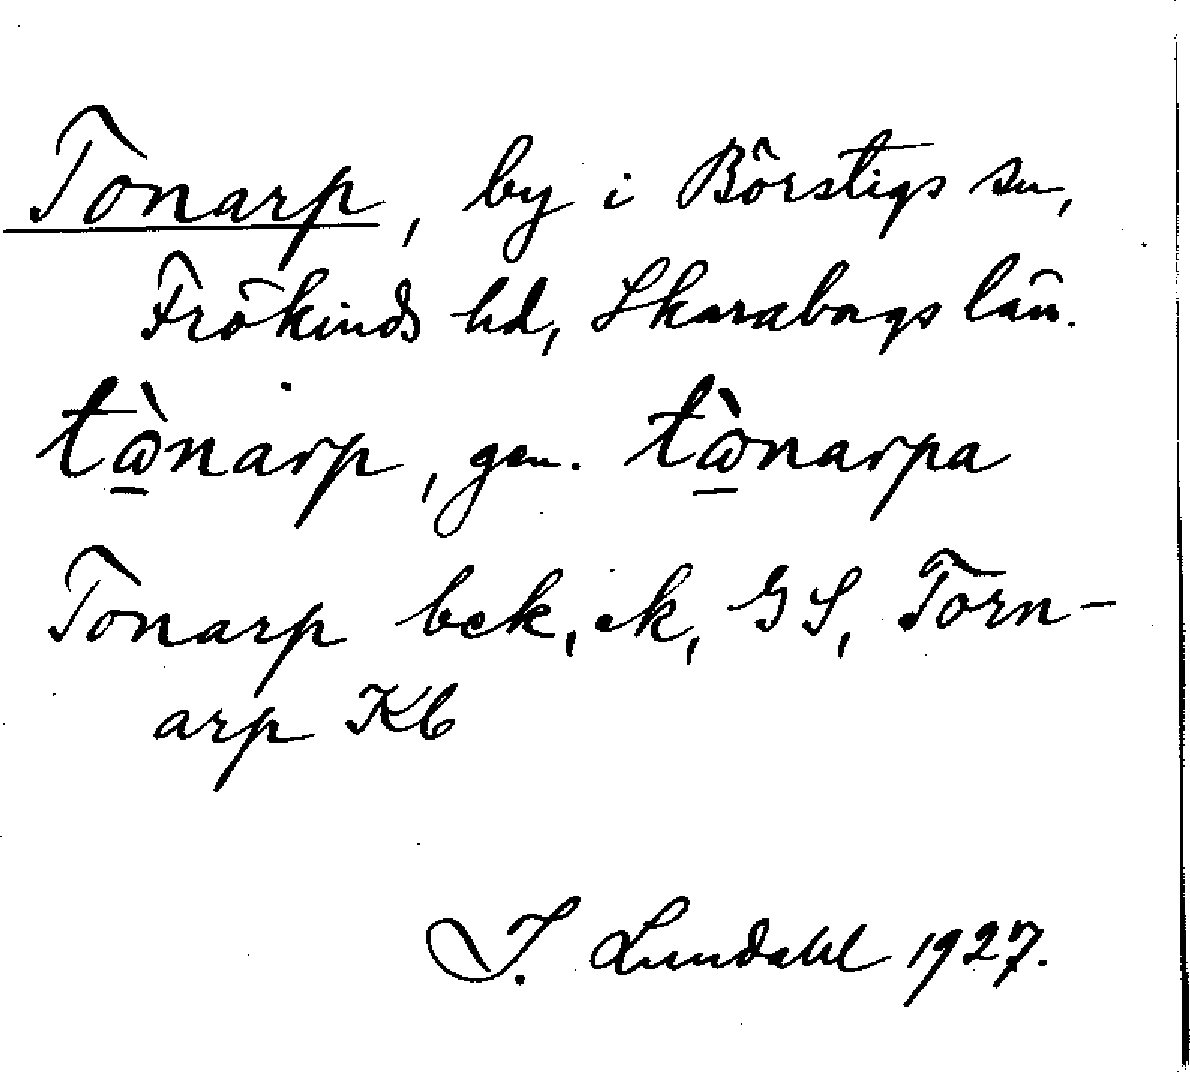 Tonarp, by i Börstigs sn,
Frökinds hd, Skarabogs län.
tὼ̱narp, gen. tὼ̱narpa
Tonarp bek, ek, GS, Torn-
arp Kb
I. Lundahl 1927.